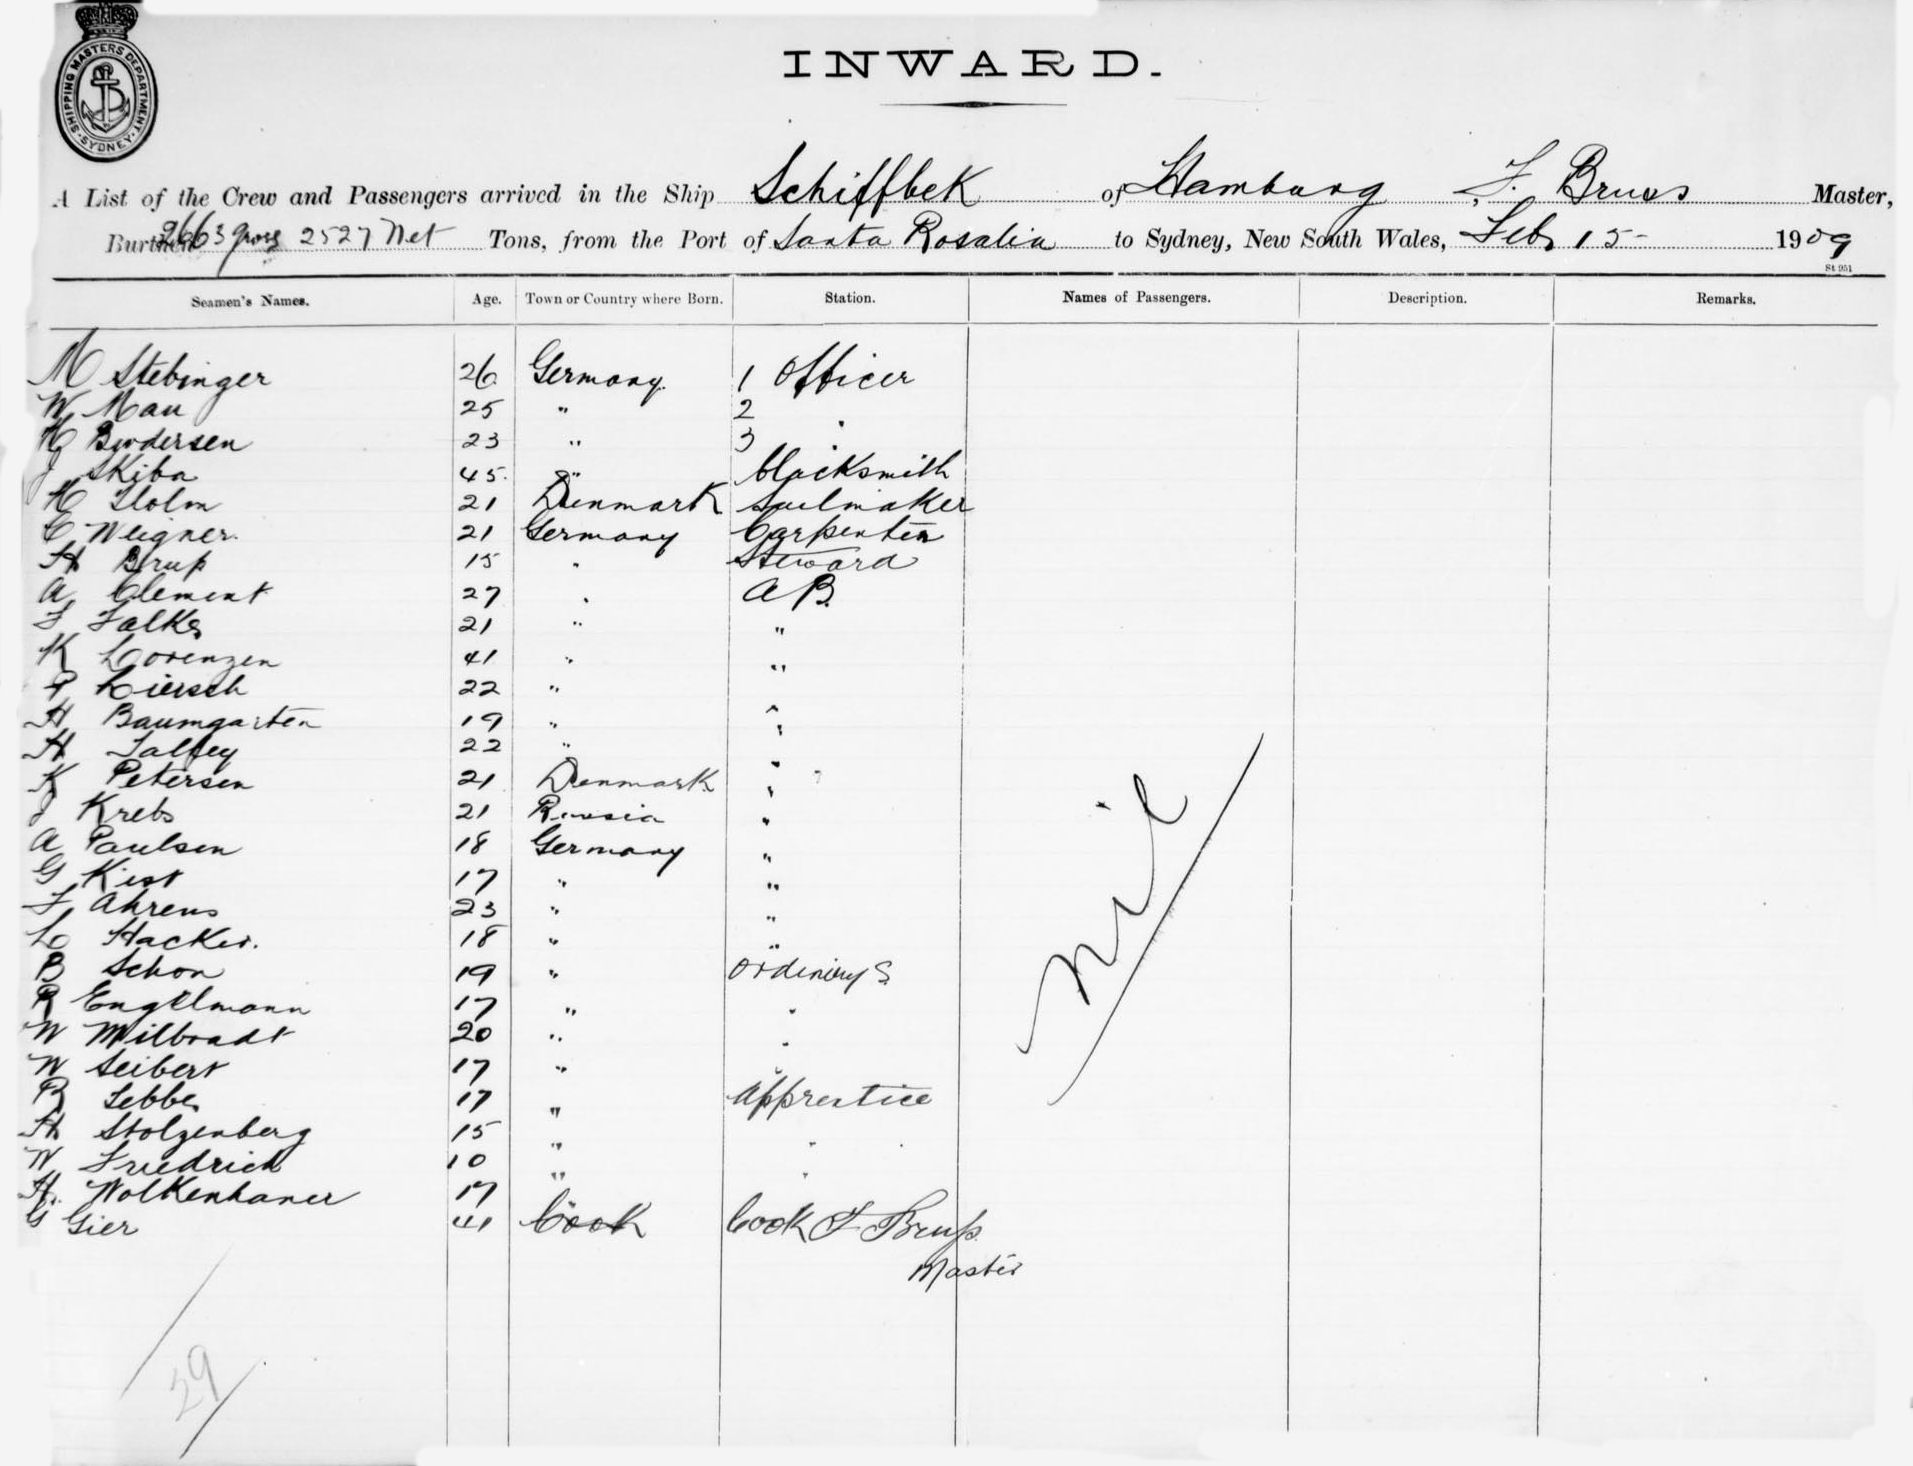 SHIPPING MASTERS DEPARTMENT · SYDNEY ·
INWARD.
A List of the Crew and Passengers arrived in the Ship Schiffbek of Hamburg, F. Bruss Master,
Burthen 2663 gross 2527 Net Tons, from the Port of Santa Rosalia to Sydney, New South Wales, Feb 15 1909
St 951
Seamen's Names. Age. Town or Country where Born. Station. Names of Passengers. Description. Remarks.
M Stebinger 26 Germany. 1 Officer
W Mau 25 " 2 "
H Brodersen 23 " 3
J Skiba 45. " blacksmith
H Holm 21 Denmark Sailmaker
C Weigner. 21 Germany Carpenter
H Brup 15 " Steward
A Clement 27 " A B.
F Falke 21 " "
K Lorenzen 41 " "
P Liersch 22 "
H Baumgarten 19 " "
H 22 "
K Petersen 21 Denmark "
J Krebs 21 Russia "
A Paulsen 18 Germany "
G Kist 17 " "
F Ahrens 23 " "
L Hacker. 18 " "
B Schon 19 " Ordinary S.
R Engelmann 17 " "
W Milbradt 20 " "
W Seibert 17 " "
B Tebbe 17 " Apprentice
H Stolzenberg 15 " "
W Friedrich 10 " "
H. Wolkenhaner 17 "
G Gier 41 Cook Cook F Brup.
Master
nil
29